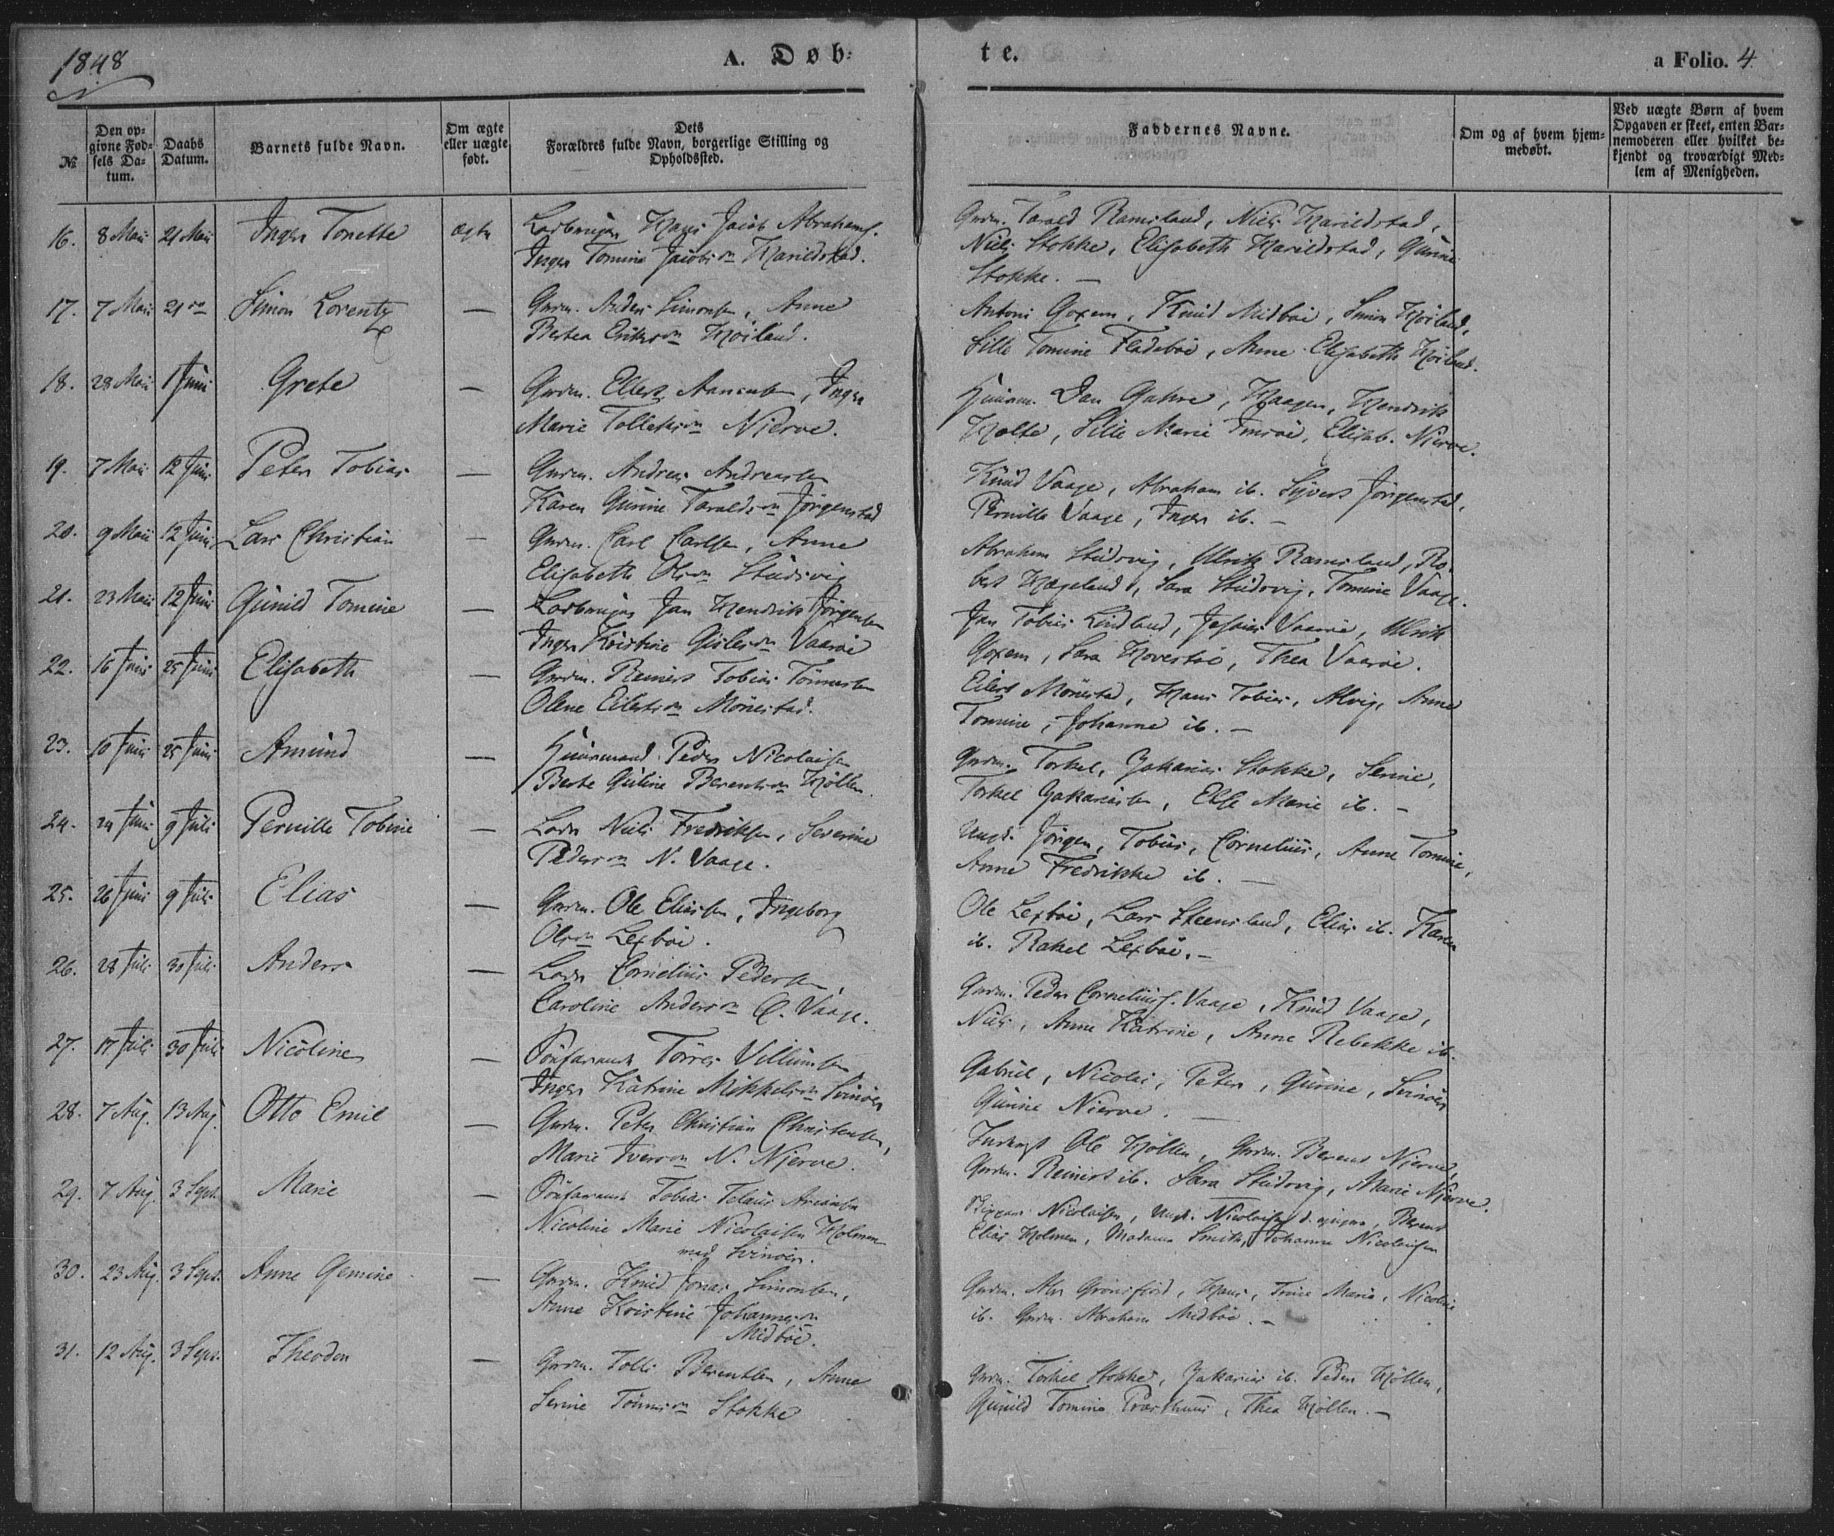 1848
A. Døb-
te.
a Folio. 4
№
Den op-
givne Fød-
sels Da-
tum.
Daabs
Datum.
Barnets fulde Navn.
Om ægte
eller uægte
født.
Dets
Forældres fulde Navn, borgerlige Stilling og
Opholdssted.
Faddernes Navne.
Om og af hvem hjem-
medøbt.
Ved uægte Børn af hvem
Opgaven er skeet, enten Bar-
nemoderen eller hvilket be-
kjendt og troværdigt Med-
lem af Menigheden.
16. 8 Mai 21 Mai Inger Tonette ægte
Hans Jacob Abrahams.
Inger Tomine Jacobs Harildstad.
Tarald Ramsland, Niels Harildstad,
Niels Stokke, Elisabeth Harildstad, Gurine
Stokke. —
17. 7 Mai 21 Simon Lorentz —
Grdm. Anders Simonsen, Anne
Høiland.
Antoni Goxem, Knud Midbøe, Simon Høiland,
Sille Tomine Fladebøe, Anne Elisabeth Høiland.
18. 28 Mai 1 Juni Grete —
Grdm. Ellert Aanensen, Inger
Marie Tollefs Nierve.
Jan Gahre, Haagen, Hendrik
Holte, Sille Marie, Elisab. Nierve.
19. 7 Mai 12 Juni Peter Tobias —
Grdm. Andreas Andreasen
Karen Gurine Taralds Jørgenstad
Knud Vaage, Abraham ib. Sivert Jørgenstad,
Pernille Vaage, Inger ib. —
20. 9 Mai 12 Juni Lars Christian —
Grdm. Carl Carlsen, Anne
Elisabeth Ols Studsvig
Abraham Studsvig, Ulrik Ramsland, Ro-
bert Hægeland, Sara Studsvig, Tomine Vaage.
21. 23 Mai 12 Juni Gunild Tomine —
Jan Hendrik Jørgensen
Inger Kristine Gisles Vaarøe
Jan Tobias Lindland, Vaarøe, Ulrik
Goxem, Sara Hovesbøe, Thea Vaarøe.
22. 16 Juni 25 Juni Elisabeth —
Grdm. Reinert Tobias Tønnesen
Olene Eilerts Mønestad.
Eilert Mønestad, Hans Tobias, Alvig, Anne
Tomine, Johanne ib. —
23. 10 Juni 25 Juni Amund —
Huusmand Peder Nicolaisen
Berte Guline Berents Høllen.
Grdm. Torkel, Zakarias Stokke, Serine,
Torkel Zakariasen, Else Marie ib. —
24. 24 Juni 9 Juli Pernille Tobine —
Lods Niels Fredriksen, Severine
Peders N. Vaage.
Ungk. Jørgen, Tobias, Cornelius, Anne Tomine,
Anne Fredrikke ib. —
25. 26 Juni 9 Juli Elias —
Grdm. Ole Eliassen, Ingeborg
Ols Lexbøe.
Ole Lexbøe, Lars Steensland, Elias ib. Karen
ib. Rakel Lexbøe. —
26. 28 Juli 30 Juli Anders —
Lods Cornelius Pedersen,
Caroline Anders Vaage.
Grdm. Peder Corneliuss. Vaage, Knud Vaage,
Niels, Anne Katrine, Anne Rebekke ib.
27. 17 Juli 30 Juli Nicoline —
Søefarende Tørres Villumsen
Inger Katrine Mikkels Svinøer
Gabriel, Nicolai, Peter, Gurine, Svinøer
Gurine Nierve. —
28. 7 Aug. 13 Aug. Otto Emil —
Grdm. Peter Christian Christensen,
Marie Ivers N. Njerve.
Ole Høllen, Grdm. Berent Nierve,
Grdm. Reinert ib. Sara Studsvig, Marie Njerve.
29. 7 Aug. 3 Sept. Marie —
Søefarende Tobias
Nicoline Marie Nicolaisen Holmen
ved Svinøer.
Nicolaisen, Ungk. Nicolaisen, Berent
Elias Holmen, Madame Smith, Johanne Nicolaisen
30. 23 Aug. 3 Sept. Anne Gemine —
Grdm. Knud Jonas Simonsen,
Anne Kristine Johannes
Midbøe.
Grdm. Alex Grønsfjord, Hans, Trine Marie, Nicolai
ib. Grdm. Abraham Midbøe. —
31. 12 Aug. 3 Sept. Theodor —
Grdm. Tolli Berentsen, Anne
Serine Tønnes Stokke
Grdm. Torkel Stokke, Zakarias ib. Peder Høllen,
Gunild Tomine, Thea Høllen. —